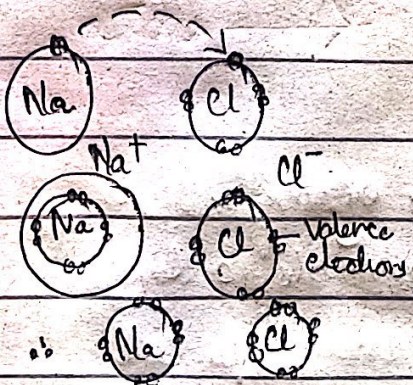 Na Cl
Na⁺ Cl⁻
Na Cl Valence
electrons
∴ Na Cl